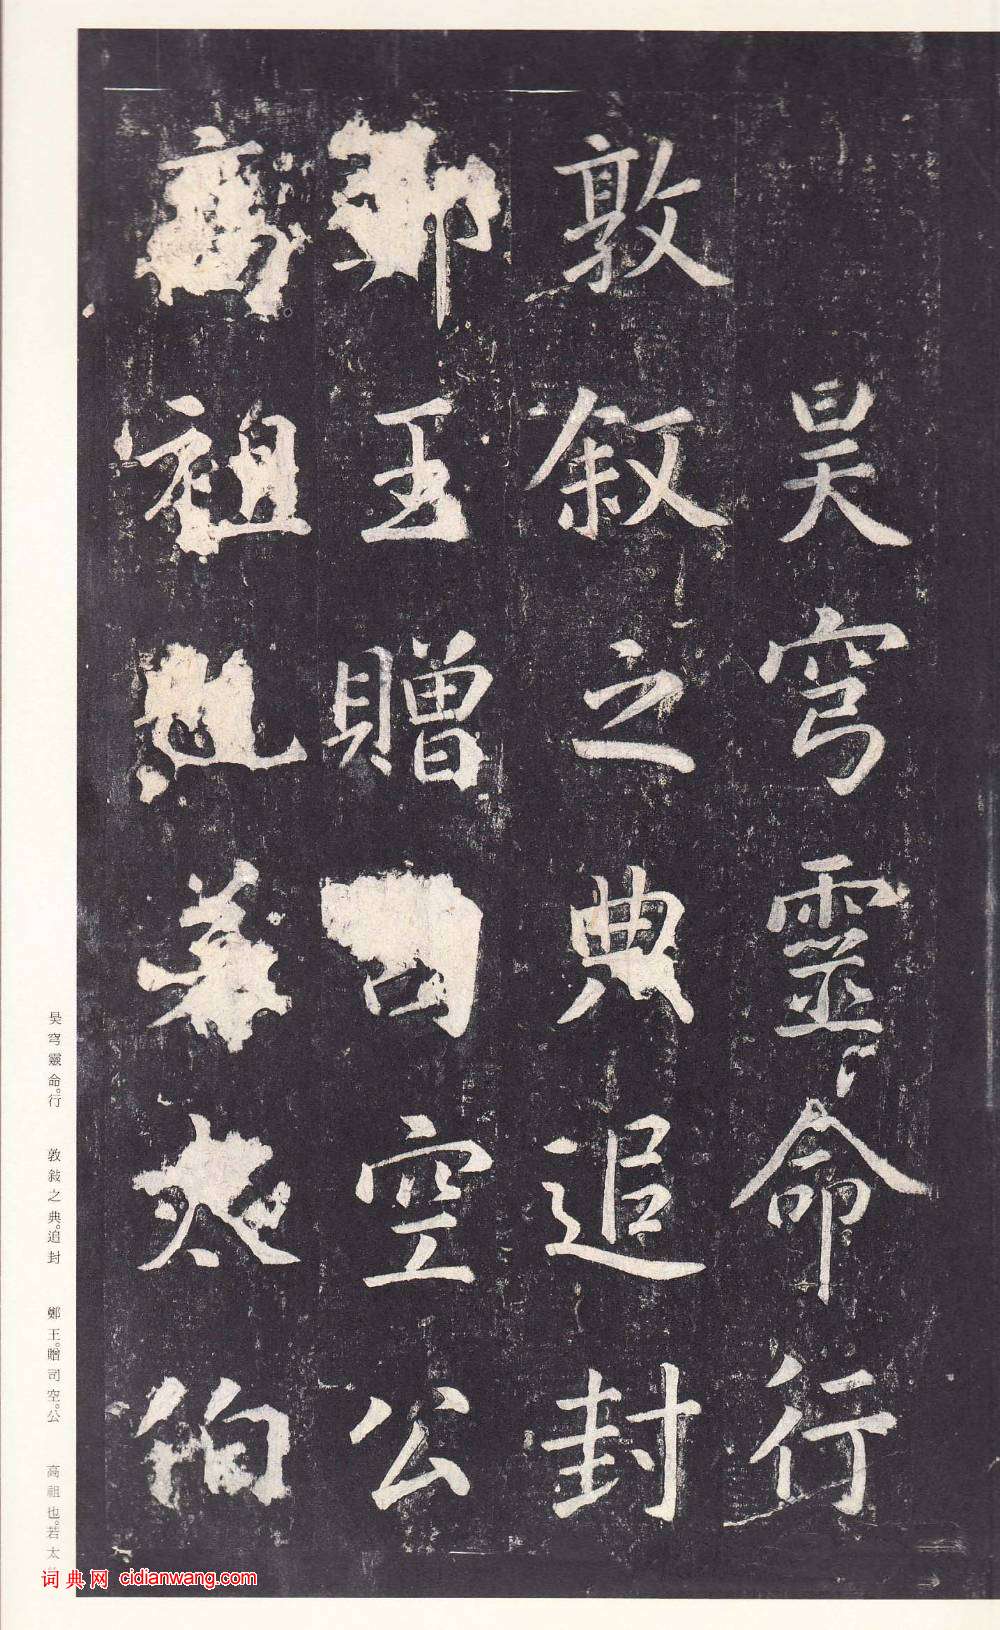 昊穹靈命行
敦敘之典追封
鄭王贈司空公
高祖也若太伯
昊穹靈命。行 敦敍之典。追封 鄭王。贈司空。公 高祖也。若太
词典网 cidianwang.com